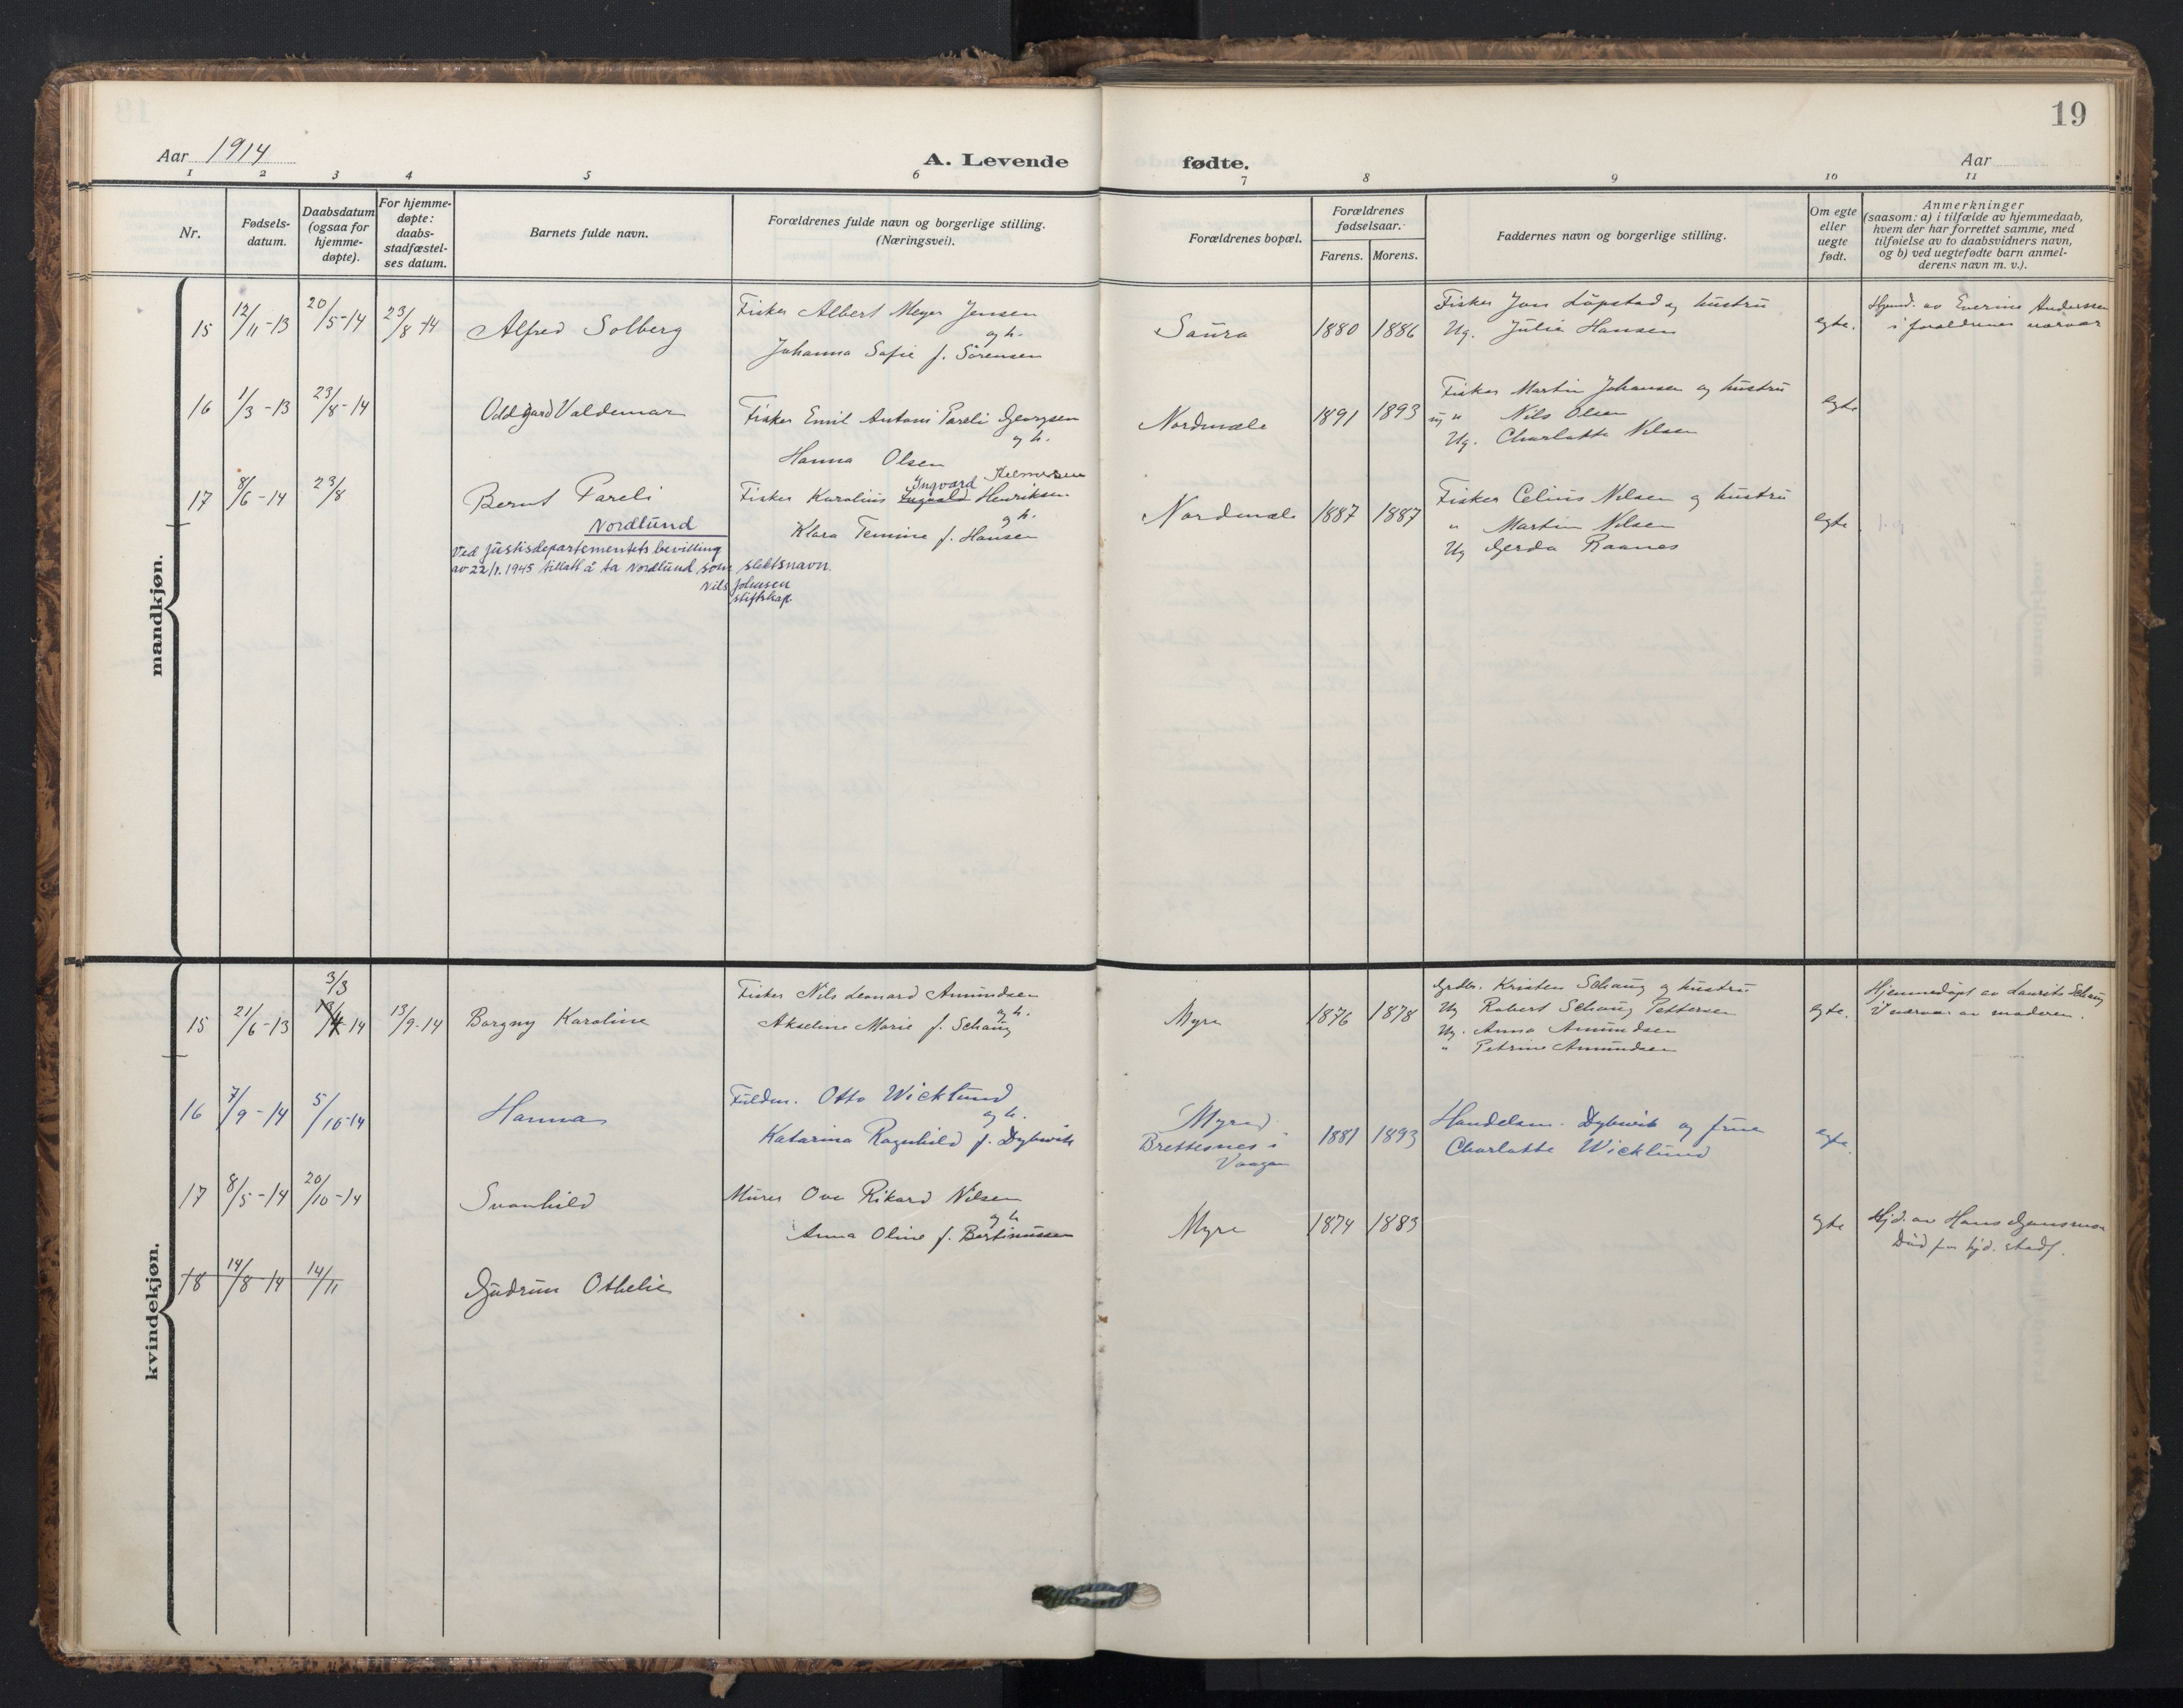 19
Aar 1914
A. Levende
fødte.
Aar
1 2 3 4 5 6 7 8 9 10 11
Nr.
Fødsels-
datum.
Daabsdatum
(ogsaa for
hjemme-
døpte).
For hjemme-
døpte:
daabs-
stadfæstel-
ses datum.
Barnets fulde navn.
Forældrenes fulde navn og borgerlige stilling.
(Næringsvei).
Forældrenes bopæl.
Forældrenes
fødselsaar.
Farens. Morens.
Faddernes navn og borgerlige stilling.
Om egte
eller
uegte
født.
Anmerkninger
(saasom: a) i tilfælde av hjemmedaab,
hvem der har forrettet samme, med
tilføielse av to daabsvidners navn,
og b) ved uegtefødte barn anmel-
derens navn m. v.).
mandkjøn.
15 12/11-13 20/5-14 23/8-14 Alfred Solberg
Fisker Albert Meyer Jensen
og h.
Johanna Sofie f. Sörensen
Saura 1880 1886
Fisker Jon Löpstad og hustru
Ug. Julie Hansen
egte.
Hjemd. av Everine Anderssen
i foreldrenes nærvær
16 1/3-13 23/8-14 Oddgard Valdemar
Fisker Emil Antoni Pareli Georgsen
og h.
Hanna Olsen
Nordmele 1891 1893
Fisker Martin Johansen og hustru
" Nils Olsen
Ug. Charlotte Nilsen
egte
17 8/6-14 23/8 Bernt Pareli
Nordlund
Ingvard
Fisker Karolius Ingvald Henriksen
og h.
Klara Temine f. Hansen
Nordmele 1887 1887
Fisker Celius Nilsen og hustru
" Martin Nilsen
Ug Gerda Raanes
egte
Ved justisdepartementets bevilling
av 22/1.1945 tillatt å ta Nordlund som slektsnavn.
Nils Johnsen
stiftskap.
kvindekjøn.
15 21/6-13 3/3 13/4-14 13/9-14 Borgny Karoline
Fisker Nils Leonard Amundsen
og h.
Akseline Marie f. Schaug
Myre 1876 1878
Grdbr. Kristen Schaug og hustru
Ug Robert Schaug Pettersen
Ug. Anna Amundsen
" Petrine Amundsen
egte.
Hjemmedöpt av Laurits Schaug
i nærvær av moderen.
16 7/9-14 5/10-14 Hanna
Fuldm. Otto Wicklund
og h.
Katarina Ragnhild f. Dybwik
Myre
Brettesnes i
Vaagan
1881 1893
Handelsm. Dybwik og frue
Charlotte Wicklund
egte.
17 8/5-14 20/10-14 Svanhild
Murer Ove Rikard Nilsen
og h
Anna Oline f. Bertinussen
Myre 1874 1883
egte
Hjd. av Hans
Död för hjd. stadf.
18 14/8-14 14/11 Gudrun Othelie